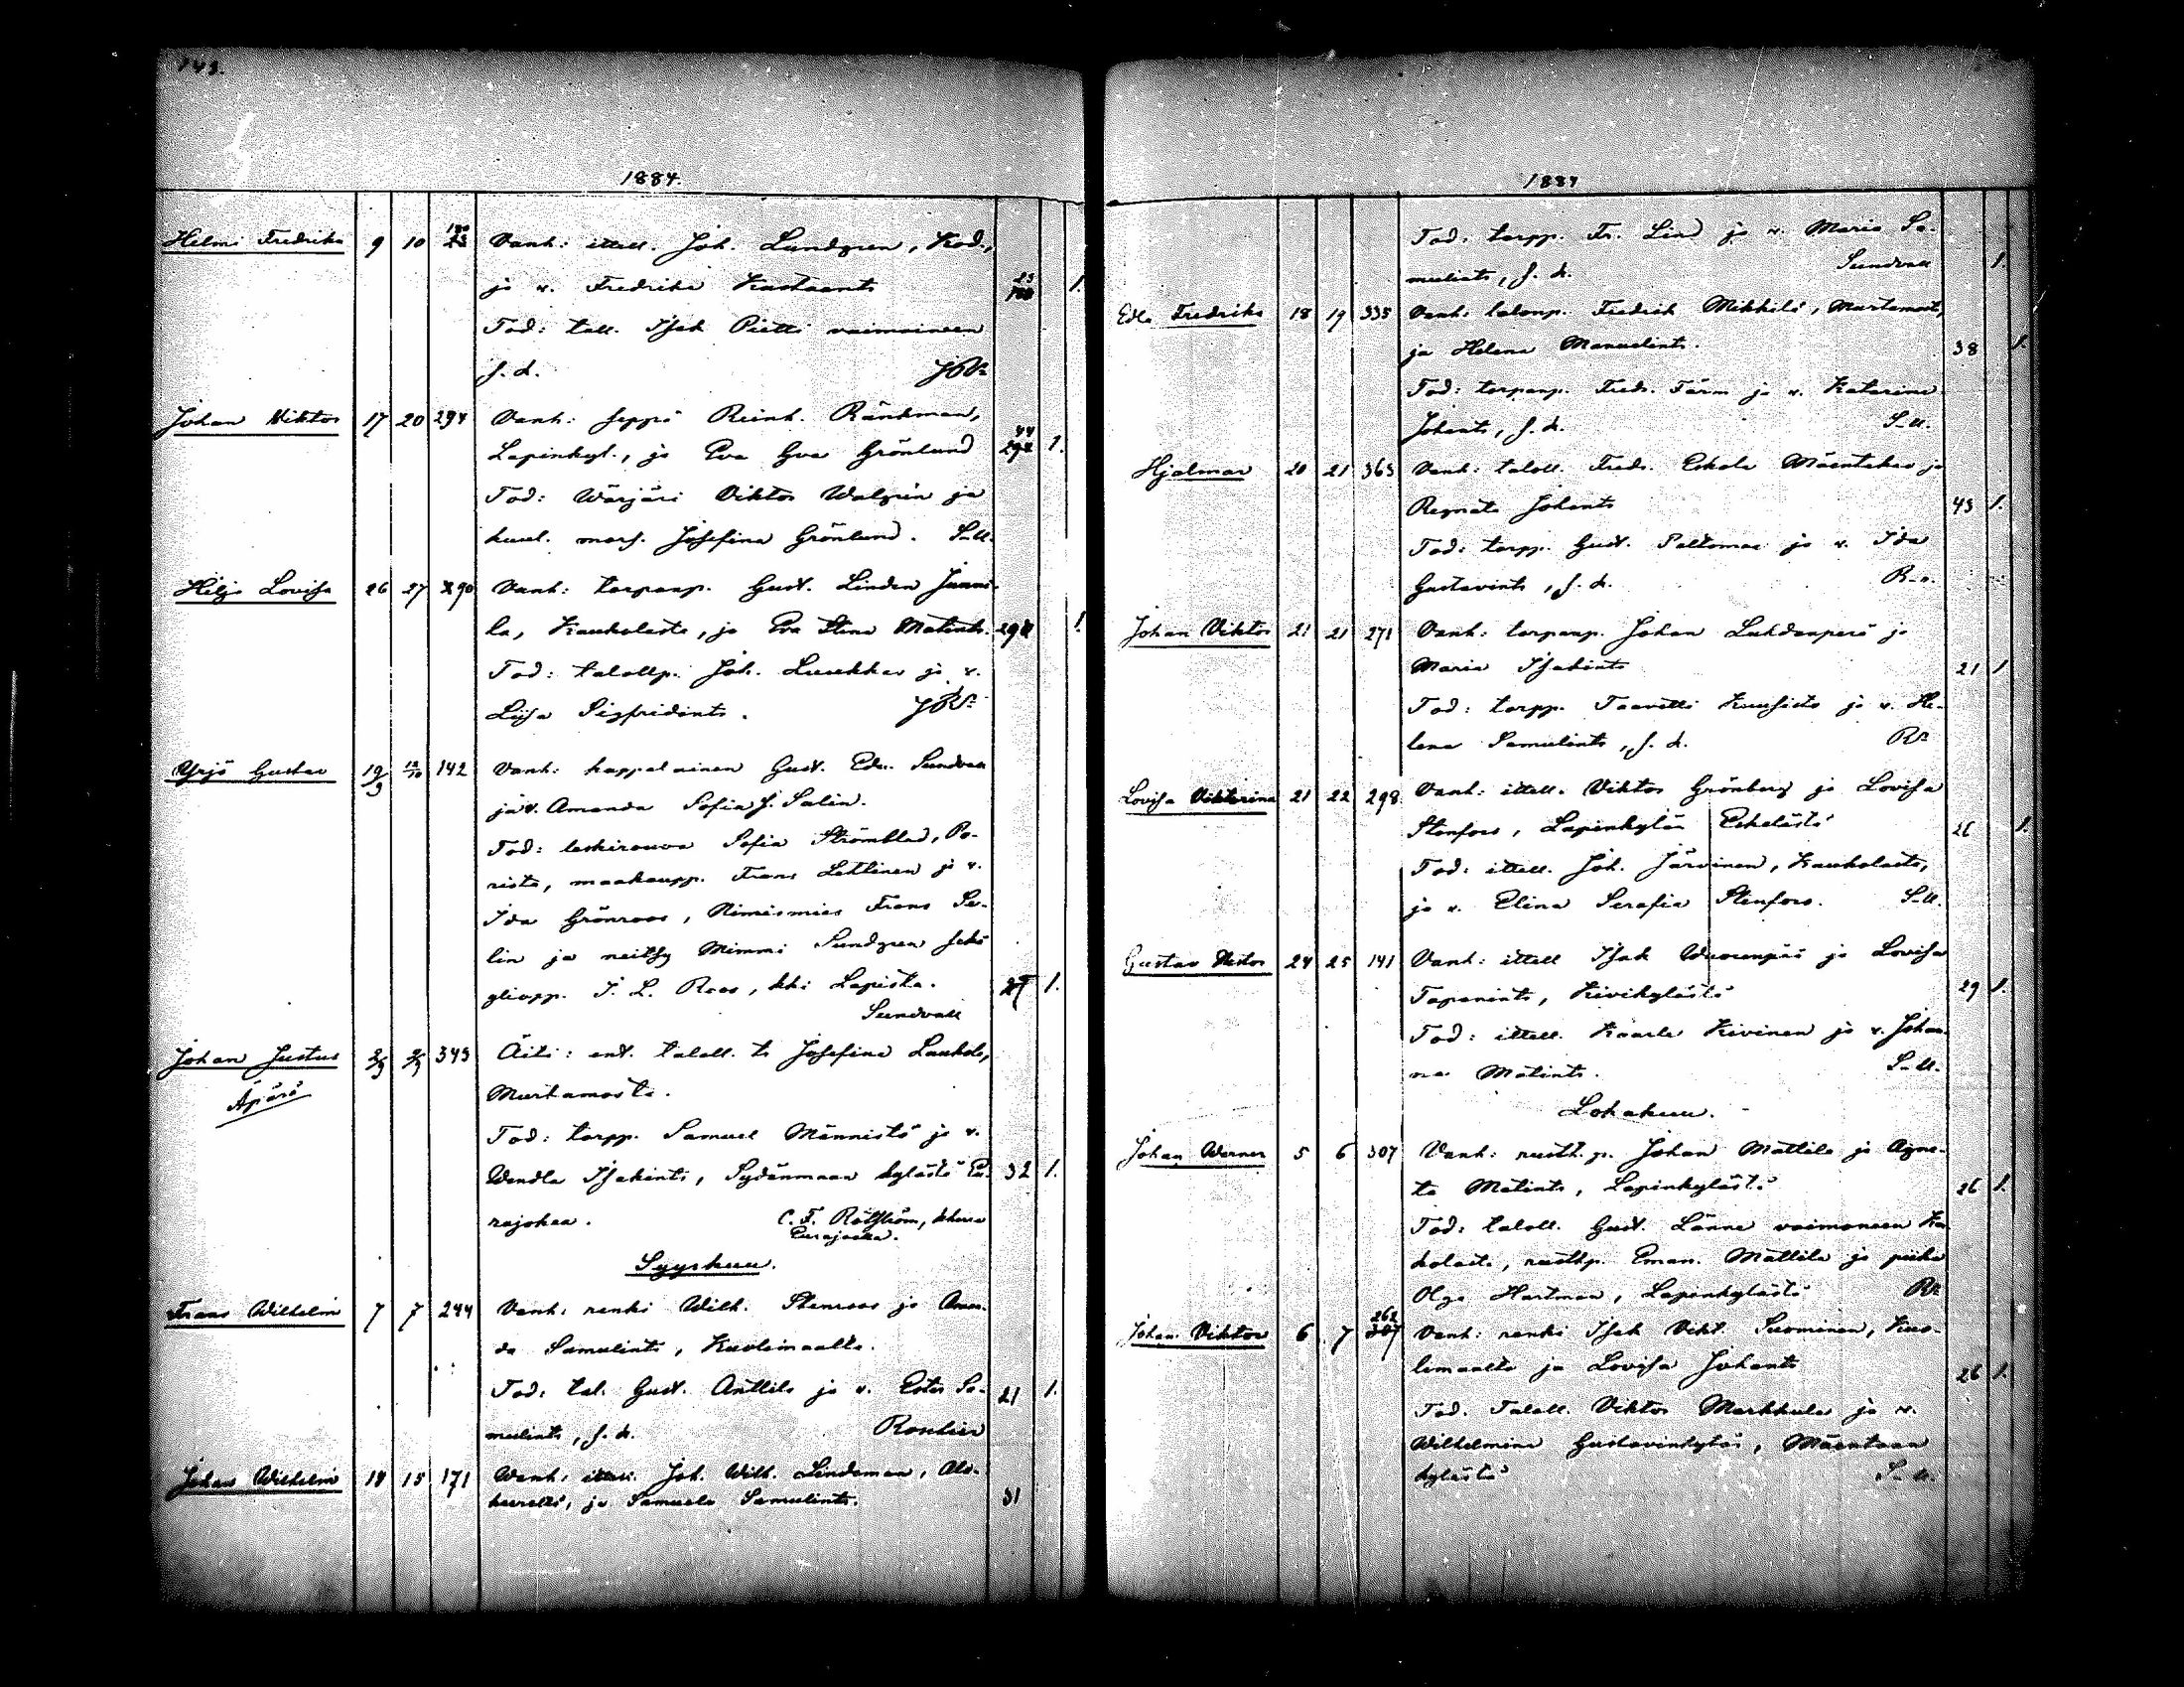 143.
1884.
Helmi Fredrika 9 10 180 23 Vanh: ittell. Joh. Lundgren, Kod.,
ja v. Fredrika Kustaant. 23 180 1.
Tod: tall. Isak Pietti vaimoineen
s. k. JRs
Johan Viktor 17 20 294 Vanh: seppä Reinh. Ränkman,
Lapinkyl., ja Eva Gva Grönlund 44 294 1.
Tod: Wärjäri Viktor Walgrén ja
kuul. mors. Josefina Grönlund. S-ll.
Hilja Lovisa 26 27 290 Vanh: torpanp. Gust. Linden Junni-
la, Kaukolasta, ja Eva Stina Matint. 29 1
Tod: talollp. Joh. Luukkas ja v.
Liisa Sigfridint. JRs
Yrjö Gustav 19/9 12/10 142 Vanh: kappalainen Gust. Edv. Sundvall
ja v. Amanda Sofia f. Salin.
Tod: leskirouva Sofia Strömblad, Po-
rista, maakaupp. Frans Lehtinen ja v.
Ida Grönroos, Nimismies Frans Sa-
lin ja neitsy Mimmi Sundgren sekä
gliopp. J. L. Roos, kki Lapista. 27 1.
Sundvall
Johan Justus 343 Äiti: ent. taloll. t. Josefina Laukola,
Äpärä Murtamosta.
Tod: torpp. Samuel Männistö ja v.
Wendla Isakint., Sydänmaan kylästä Eu- 32 1.
rajokea. C. F. Rotström, kherra
Eurajoella.
Syyskuu.
Frans Wilhelm 7 7 244 Vanh: renki Wilh. Stenroos ja Aman-
da Samulint., Kuolimaalta.
Tod: tal. Gust. Anttila ja v. Ester Sa- 21 1.
mulint., s. k. Rontier
Johan Wilhelm 14 15 171 Wanh: ittell. Joh. Wilh. Lindeman, Ala-
kurelli, ja Samuela Samulint. 31
1884
Tod: torpp. Fr. Lind ja v. Maria Sa-
mulint., s. k. Sundvall 1.
Edla Fredrika 18 19 335 Vanh: talonp. Fredrik Mikkilä, Murtamost.,
ja Helena Manuelint. 38 1.
Tod: torpanp. Fredr. Färm ja v. Katarina
Johant., s. k. S-ll.
Hjalmar 20 21 363 Vanh: taloll. Fredr. Eskola Mäentaka ja
Regnata Johant. 43 1.
Tod: torpp. Gust. Saltomaa ja v. Ida
Gustavint., s. k. R-r.
Johan Viktor 21 21 271 Vanh: torpanp. Johan Luhdanperä ja
Maria Isakint. 21 1
Tod: torpp. Taavetti Kuusisto ja v. He-
lena Samulint., s. k. Rr
Lovisa Viktorina 21 22 298 Vanh: ittell. Viktor Grönberg ja Lovisa
Stenfors, Lapinkylän Eskelästä 26 1.
Tod: ittell. Joh. Järvinen, Kaukolasta,
ja v. Elina Serafia Stenfors. S-ll.
Gustav Nestor 24 25 141 Vanh: ittell Isak Wuorenpää ja Lovisa
Tapanint., Kivikylästä 29 1.
Tod: ittell. Kaarle Kivinen ja v. Johan-
na Matint. S-ll.
Lokakuu.
Johan Werner 5 6 307 Vanh: rusth.p. Johan Mattila ja Agne-
ta Matint., Lapinkylästä 26 1.
Tod: taloll. Gust. Länne vaimoneen Kau-
kolasta, rusthp. Eman. Mattila ja piika
Olga Hartman, Lapinkylästä Rr
Johan Viktor 6 7 262 307 Vanh: renki Isak Vikt. Suominen, Kuo-
limaalta ja Lovisa Johant. 26 1.
Tod. Taloll. Viktor Markkula ja v.
Wilhelmina Gustavintytär, Mäentaan
kylästä S-ll.